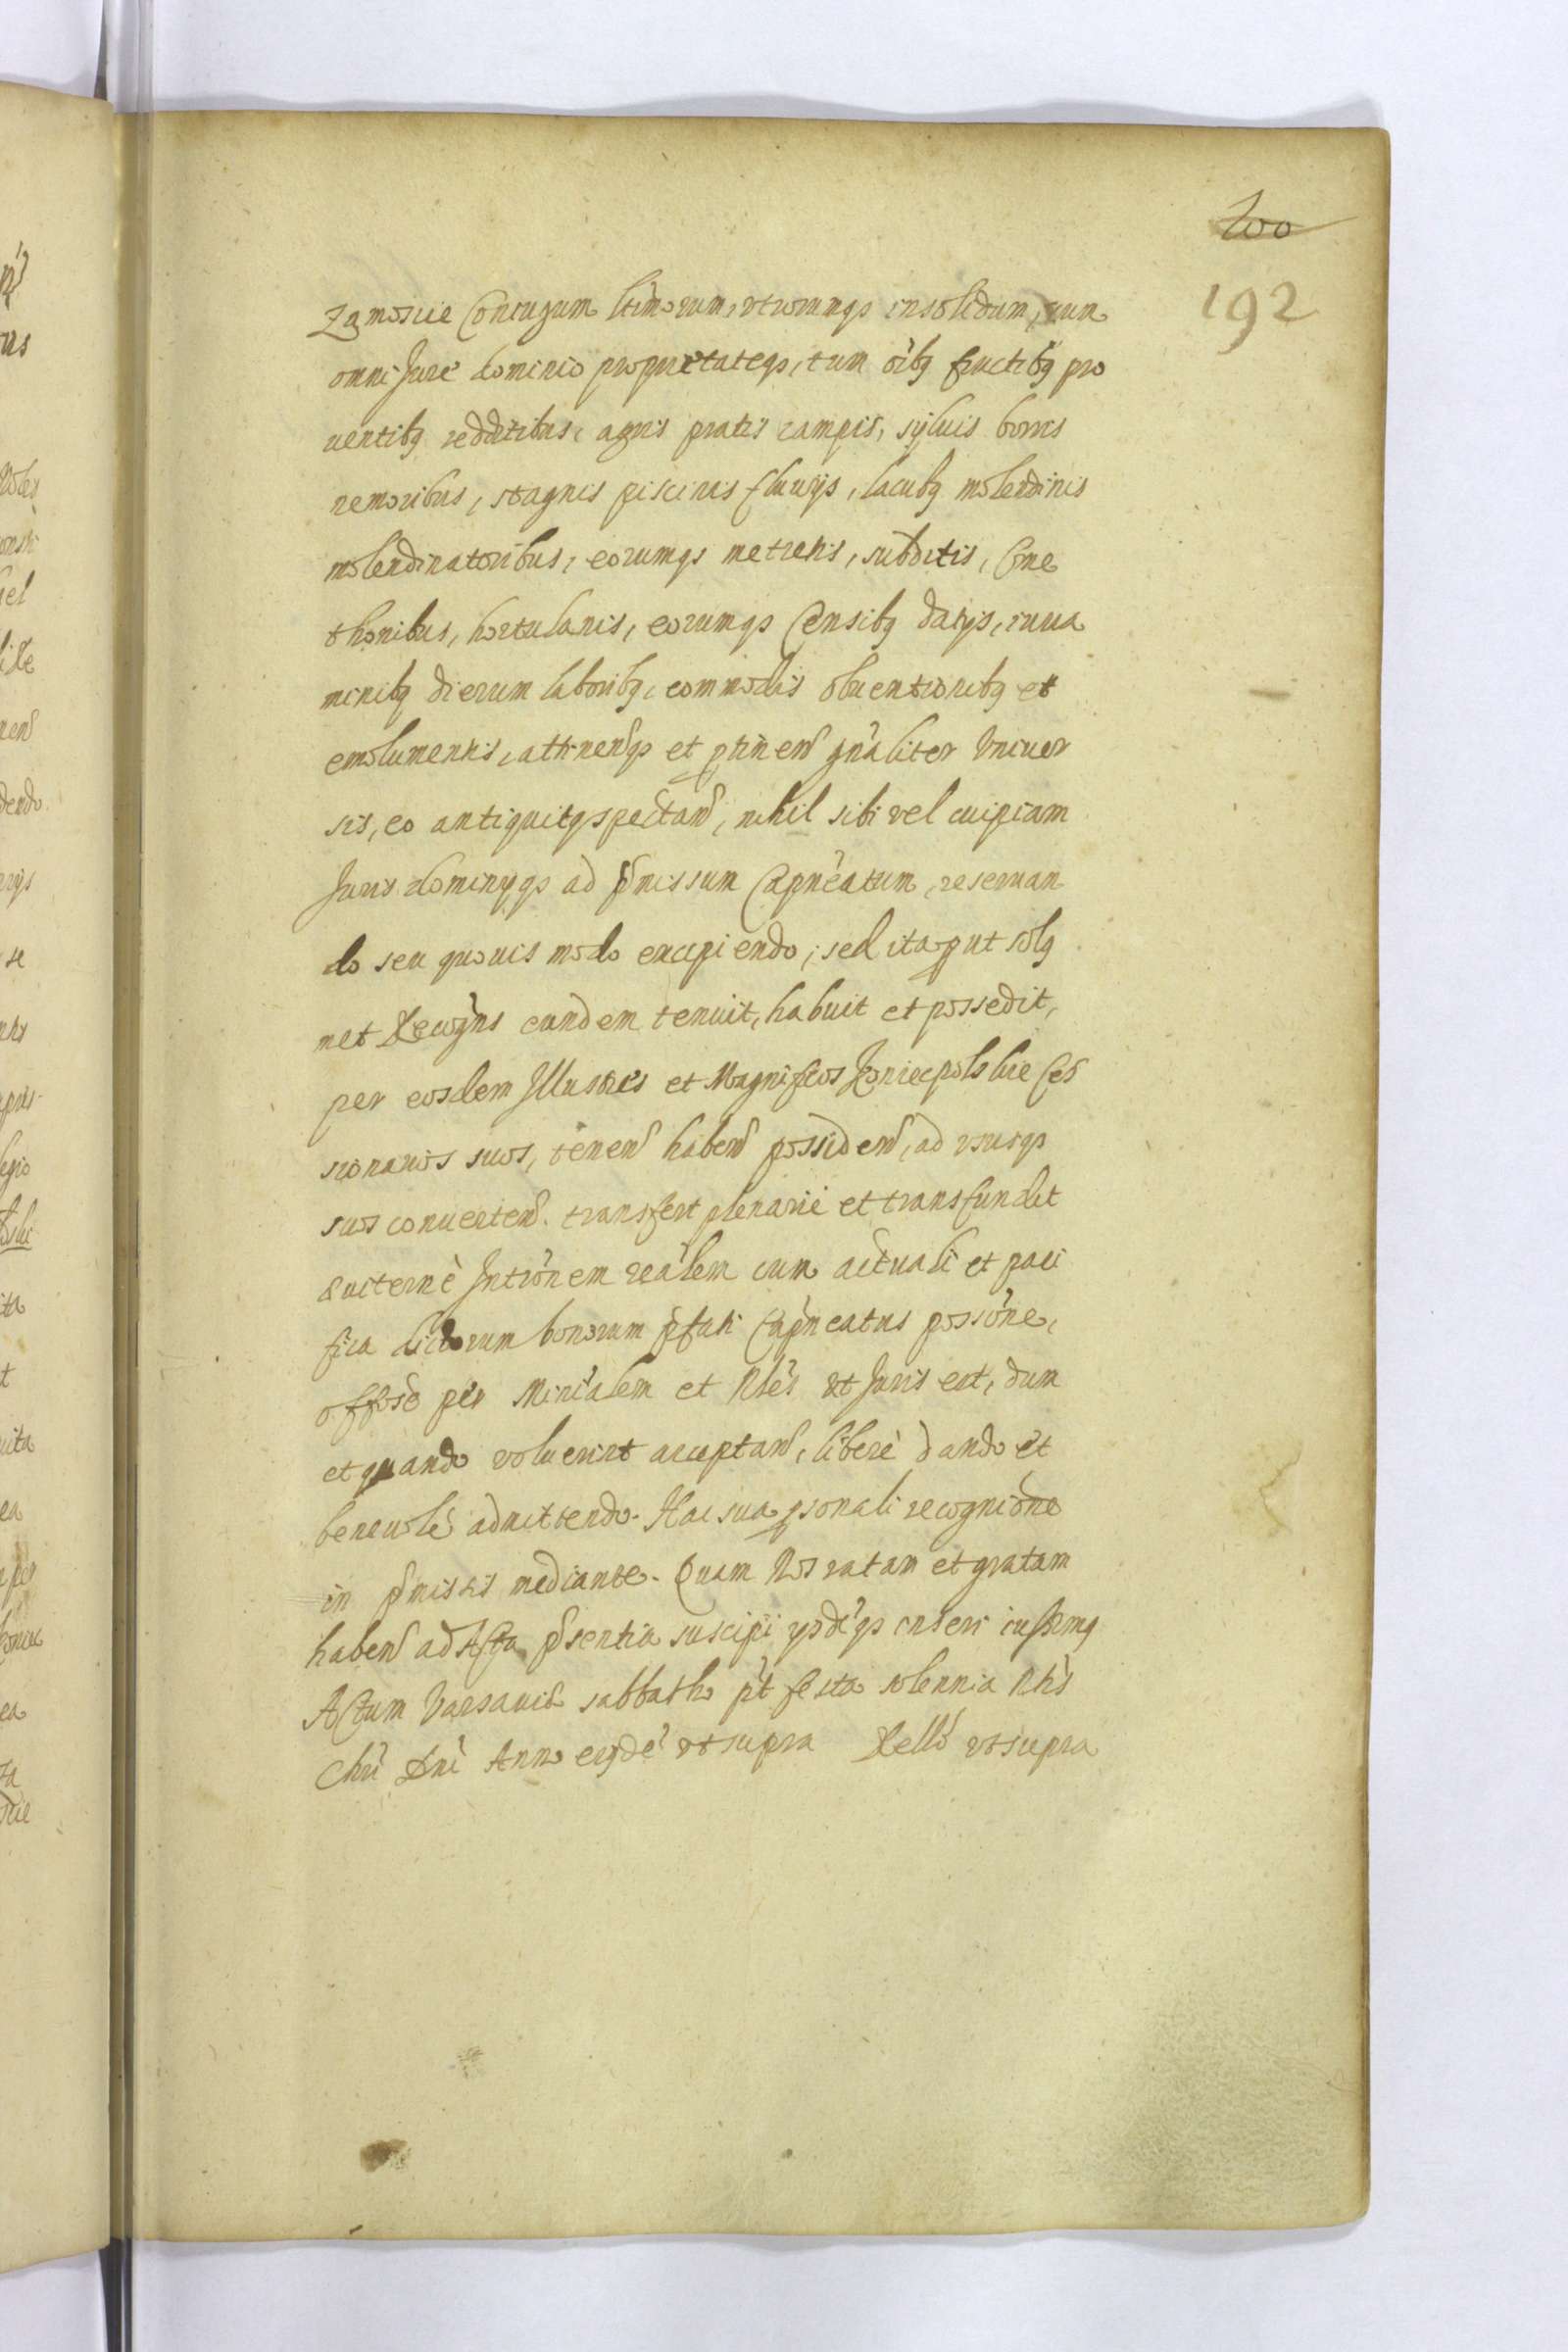 200
192
Zamoscie Coniugum ltimorum, utrorumqs insolidum, cum
omni Jure dominio proprietateqs, tum oibq fructibq pro
uentibq redditibus, agris pratis campis, syluis borris
nemoribus, stagnis piscinis fluuijs, lacubq molendinis
molendinatoribus, eorumqs metretis, subditis, Cme
thonibus, hortulanis, eorumqs Censibq datijs, iuua
minibq dierum laboribq, commodis obuentionibq et
emolumentis, attinenqs et ptinen gnaliter Vniuer
sis, eo antiquitqspectan, nihil sibi vel cuipiam
Juris dominyqs ad pmissum Capneatum, reseruan
do seu quouis modo excipiendo; sed ita put solq
met Recogns eundem tenuit, habuit et possedit,
per eosdem Illustres et Magnificos Koniecpolskie Ces
sionarios suos, tenen haben possiden, ad ususqs
suos conuerten. transfert plenarie et transfundit
Euiterne Intronem realem cum actuali et paci
fica dictorum bonorum pfati Capneatus possione,
offose per Minialem et Nbles ut Juris est, dum
et quando voluerint acceptan, libere dando et
beneuole admittendo. Hac sua psonali recognione
in pmissis mediante. Quam Nos ratam et gratam
haben ad Acta psentia suscipi ysdeqs inseri iussimq
Actum Varsauie sabbatho pt festa solennia Ntis
Chri Dni Anno eiqde ut supra Rello ut supra